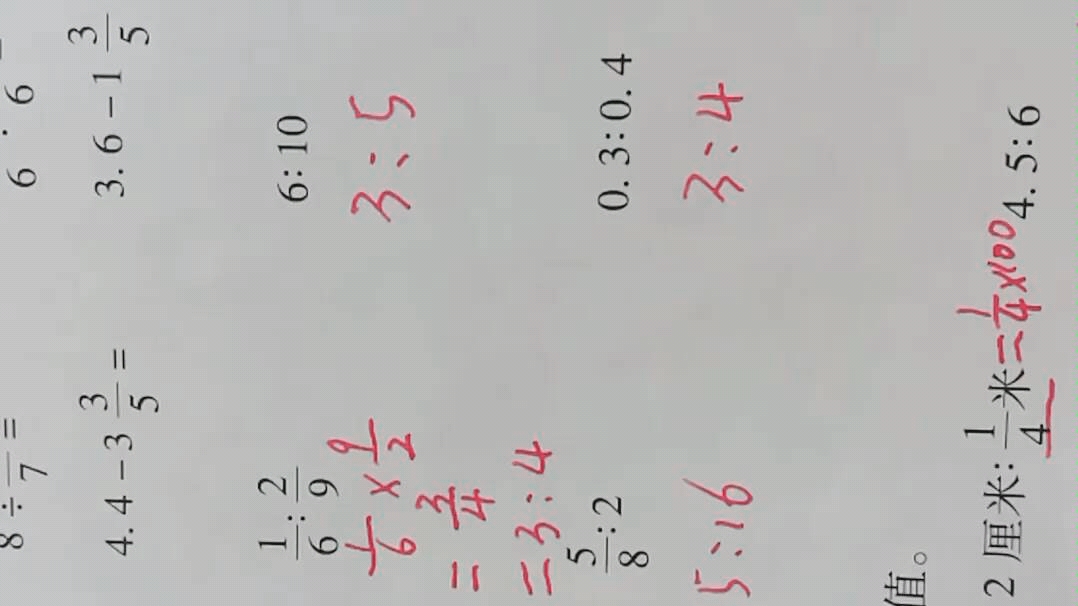 8÷ 7 =
6 · 6
4.4-3 3/5=
3.6-1 3/5
1/6:2/9
6:10
1/6×9/2
3:5
=3/4
=3:4
5/8:2
0.3:0.4
5:16
3:4
值。
2厘米:1/4米=1/4×100
4.5:6